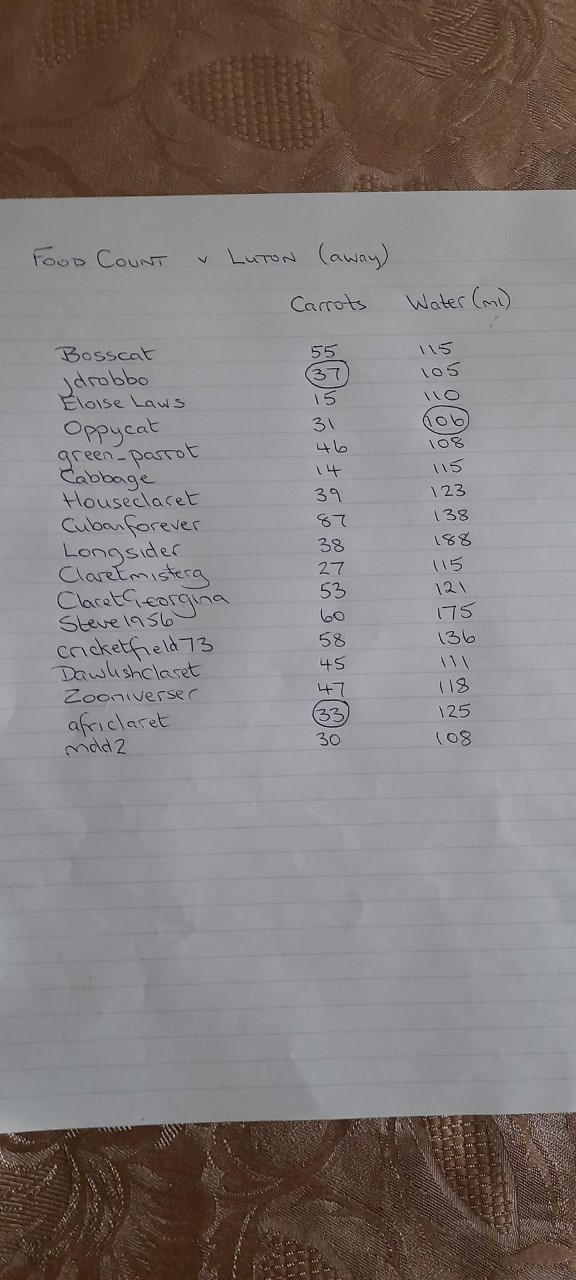 FOOD COUNT v LUTON (away)
Carrots Water (ml)
Bosscat 55 115
jdrobbo 37 105
Eloise Laws 15 110
Oppycat 31 106
green-parrot 46 108
Cabbage 14 115
Houseclaret 39 123
Cubanforever 87 138
Longsider 38 188
Claretmisterg 27 115
ClaretGeorgina 53 121
Steve1956 60 175
cricketfield73 58 136
Dawlishclaret 45 111
Zooniverser 47 118
africlaret 33 125
mdd2 30 108